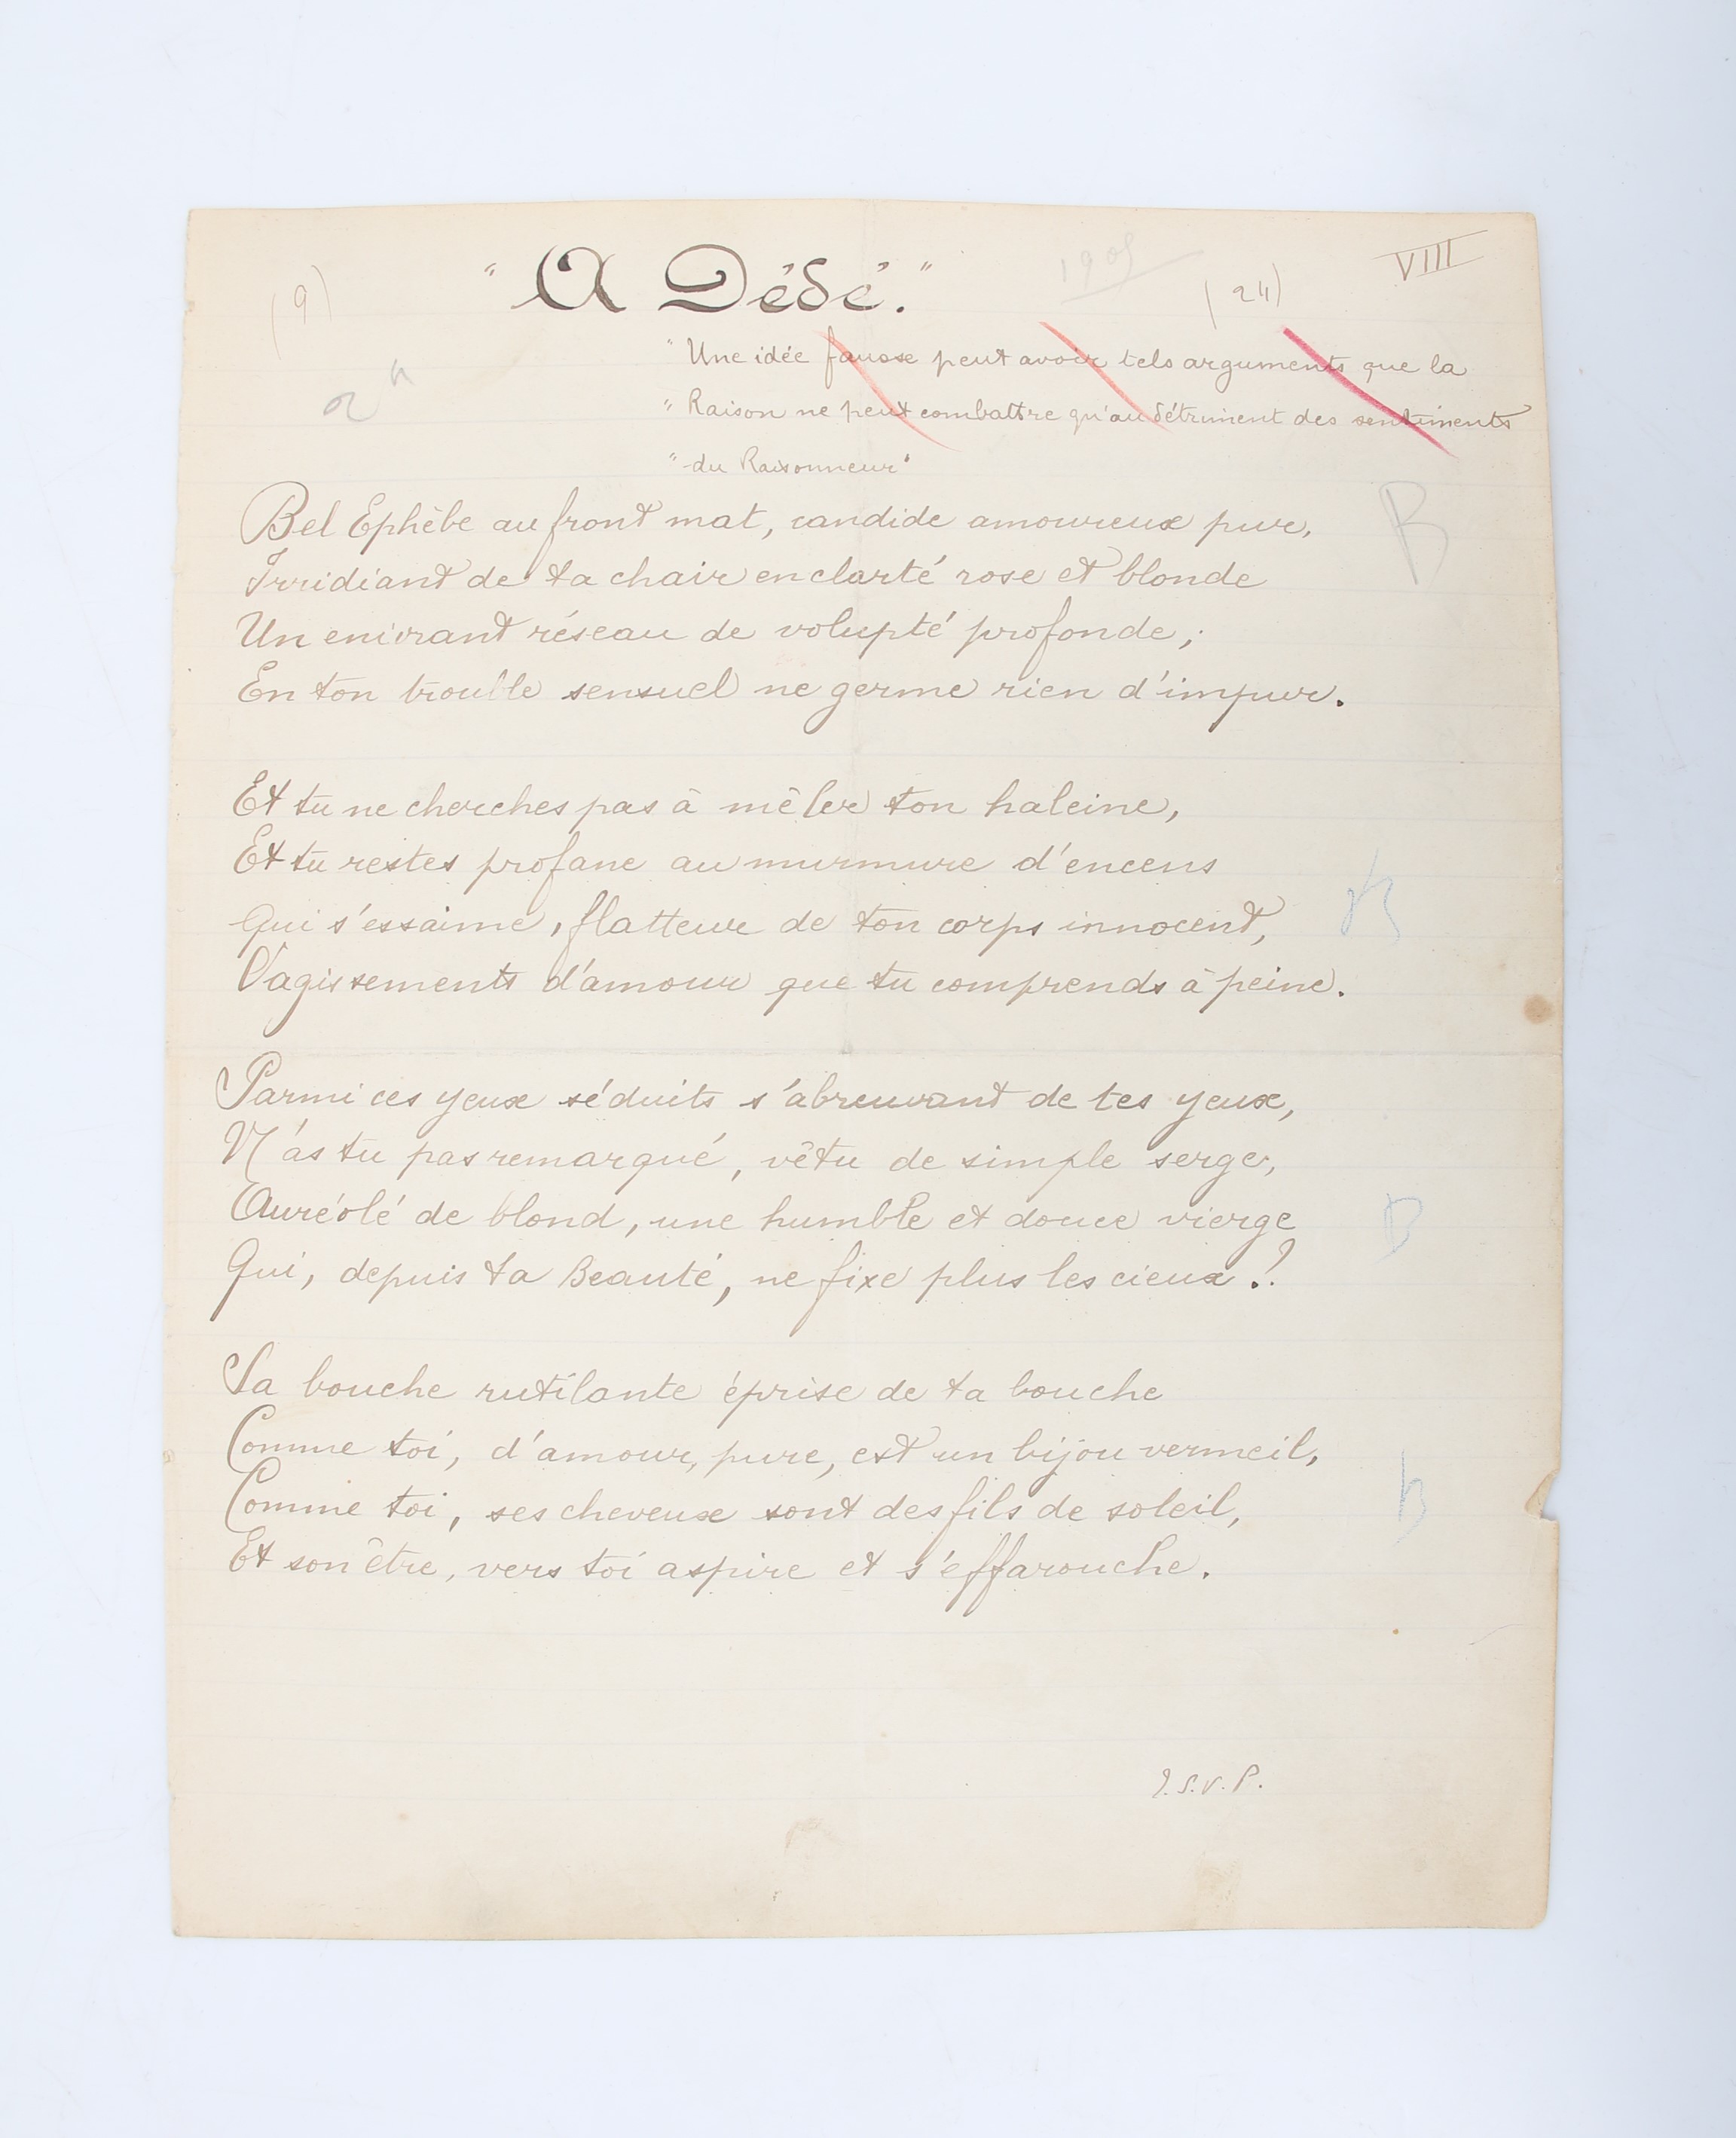 VIII
1905
(9)
"A Dédé."
(24)
"Une idée fausse peut avoir tels arguments que la
"Raison ne peut combattre qu'au détriment des sentiments
"du Raisonneur"
Bel Ephèbe au front mat, candide amoureux pur,
Irridiant de ta chair en clarté rose et blonde
Un enivrant réseau de volupté profonde;
En ton trouble sensuel ne germe rien d'impur.
Et tu ne cherches pas à mêler ton haleine,
Et tu restes profane au murmure d'encens
Qui s'essaime, flatteur de ton corps innocent,
Vagissements d'amour que tu comprends à peine.
Parmi ces yeux séduits s'abreuvant de tes yeux,
N'as tu pas remarqué, vêtu de simple serge,
Auréolé de blond, une humble et douce vierge
Qui, depuis ta Beauté, ne fixe plus les cieux!?
Sa bouche rutilante éprise de ta bouche
Comme toi, d'amour, pure, est un bijou vermeil,
Comme toi, ses cheveux sont des fils de soleil,
Et son être, vers toi aspire et s'effarouche.
T.S.V.P.